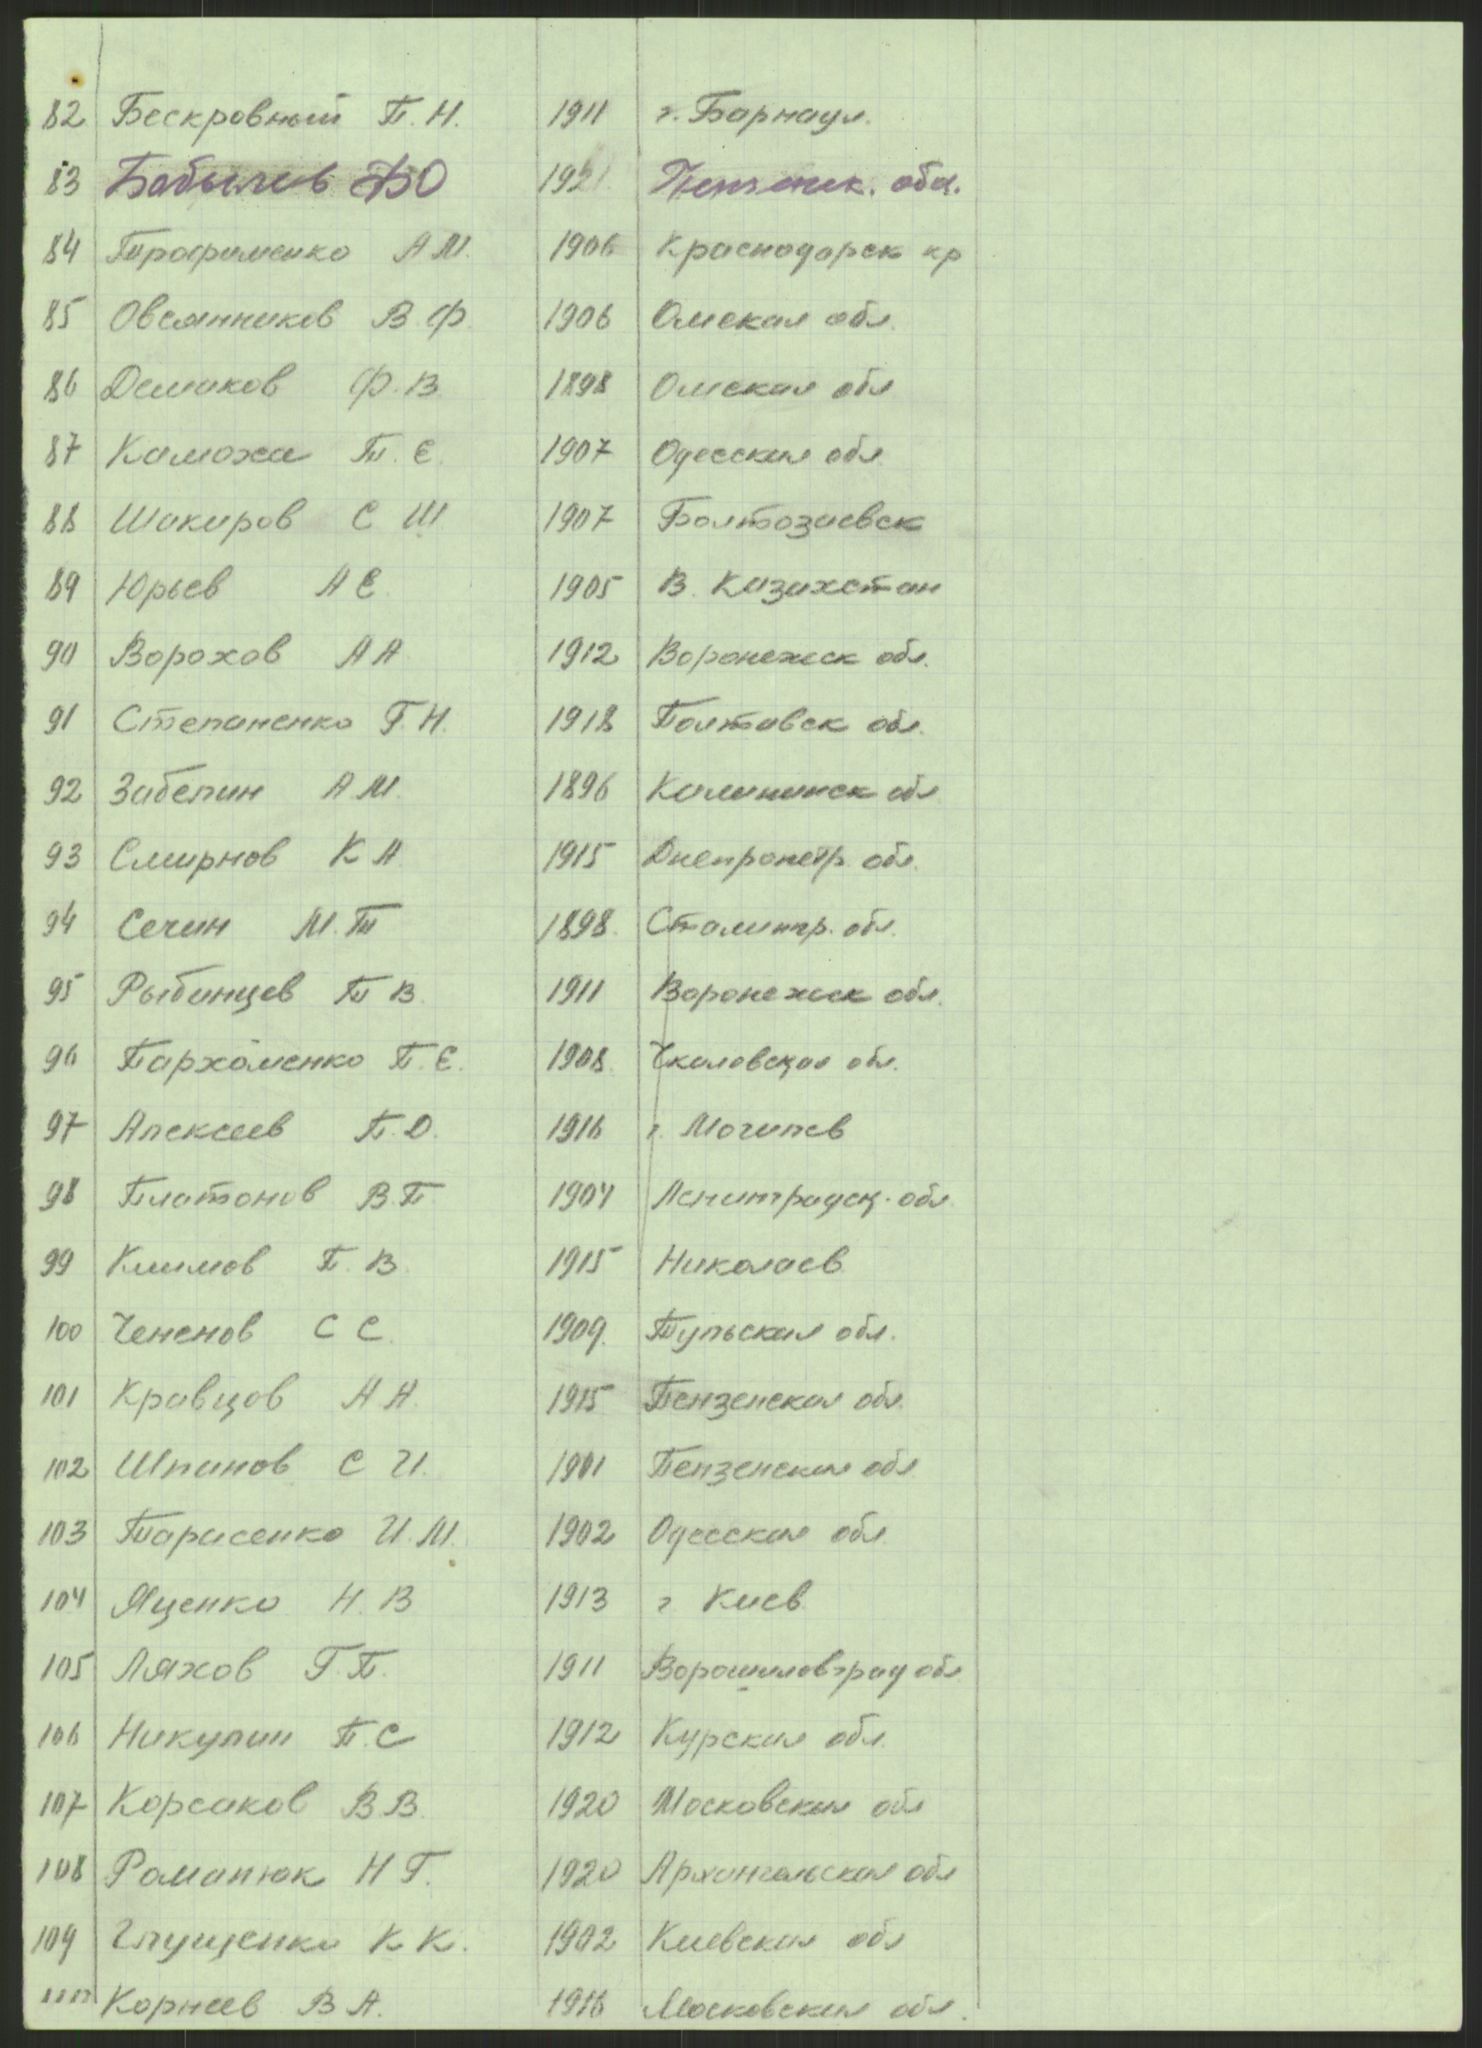 82 Бескровный П. Н. 1911 г. Барнаул.
83 Бабычев 1921 Пензенск. обл.
84 Трофименко А М. 1906 Краснодарск кр
85 Овсянников В. Ф. 1906 Омская обл.
86 Демаков Ф. В. 1898 Омская обл
87 Камоха Т. Е. 1907 Одесская обл
88 Шакиров С Ш 1907
89 Юрьев А Е. 1905 В. Казахстан
90 Ворохов А А 1912 Воронежск обл.
91 Степаненко Г. Н. 1918 Полтавск обл.
92 Забелин А М. 1896 Калининск обл
93 Смирнов К А 1915 Днепропетр. обл.
94 Сечин М. Т 1898. Сталингр. обл.
95 Рыбинцев Т В. 1911 Воронежск обл.
96 Пархоменко П. Е. 1908. Чкаловская обл.
97 Алексеев П. Д. 1916 г. Могилев
98 Платонов В. П 1904 Ленинградск. обл
99 Климов П. В. 1915 Николаев
100 Чененов С С. 1909. Тульская обл.
101 Кравцов А А. 1915 Пензенская обл.
102 Шпанов С И. 1901 Пензенская обл
103 Тарасенко И. М. 1902 Одесская обл
104 Яценко Н. В 1913 г Киев
105 Ляхов Г. П. 1911 Ворошиловград обл
106 Никулин П. С 1912 Курская обл.
107 Корсаков В В. 1920 Московская обл
108 Романюк Н Г. 1920 Архангальская обл
109 Глущенко К К. 1902 Киевская обл
110 Корнеев В А. 1916 Московская обл.